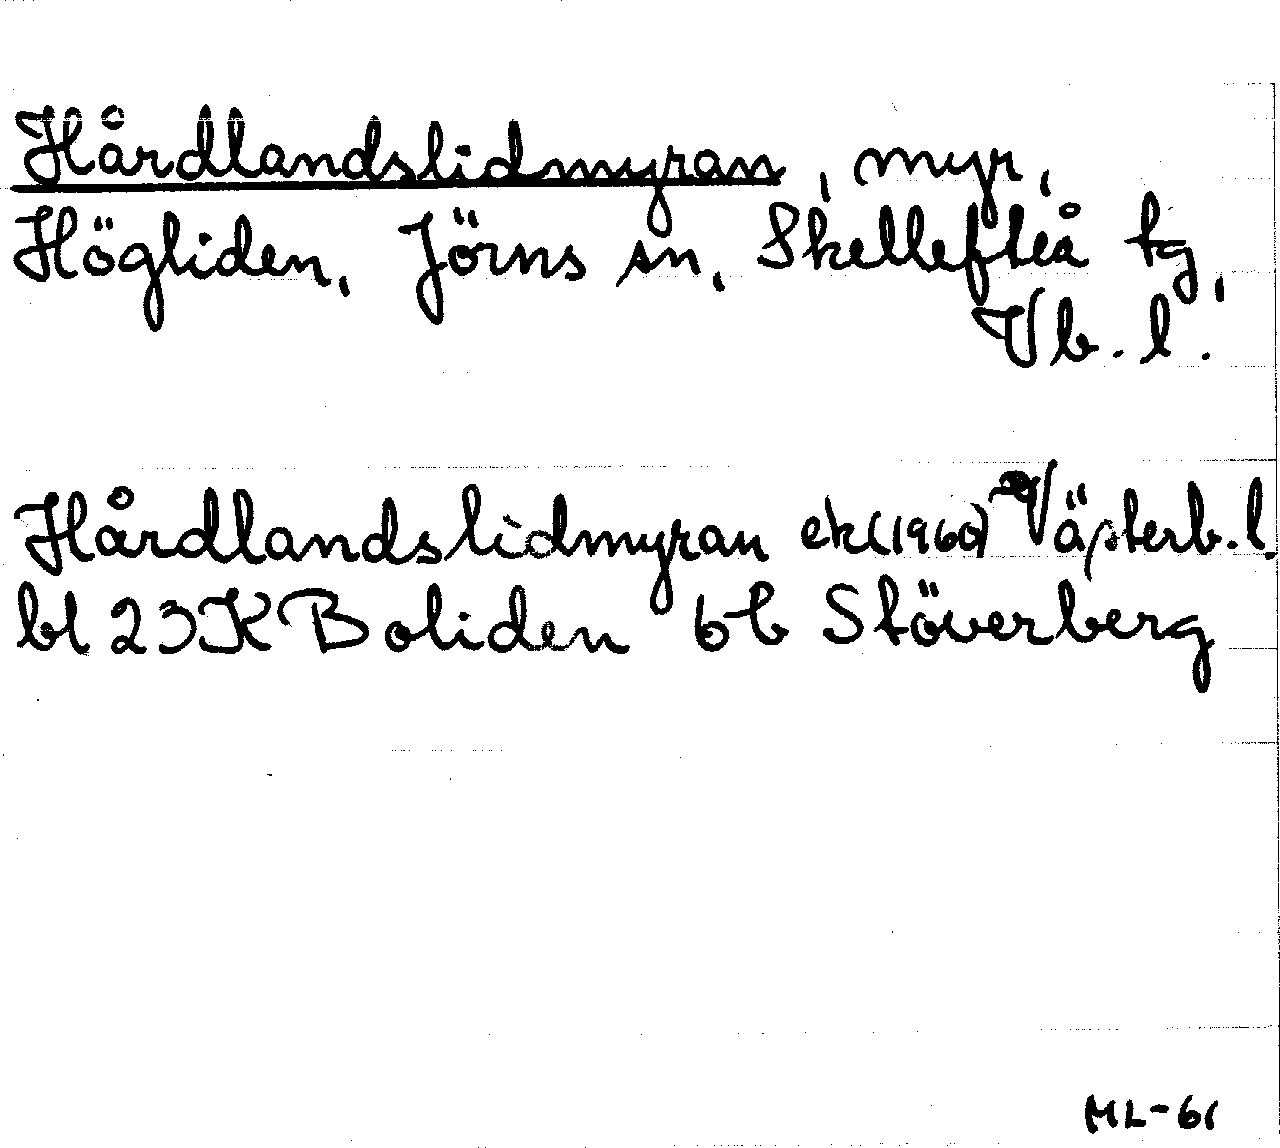 Hårdlandslidmyran, myr,
Högliden, Jörns sn, Skellefteå tg,
Vb. l.
Hårdlandslidmyran ek(1960) Västerb. l.
bl 23K Boliden 6b Stöverberg
ML-61